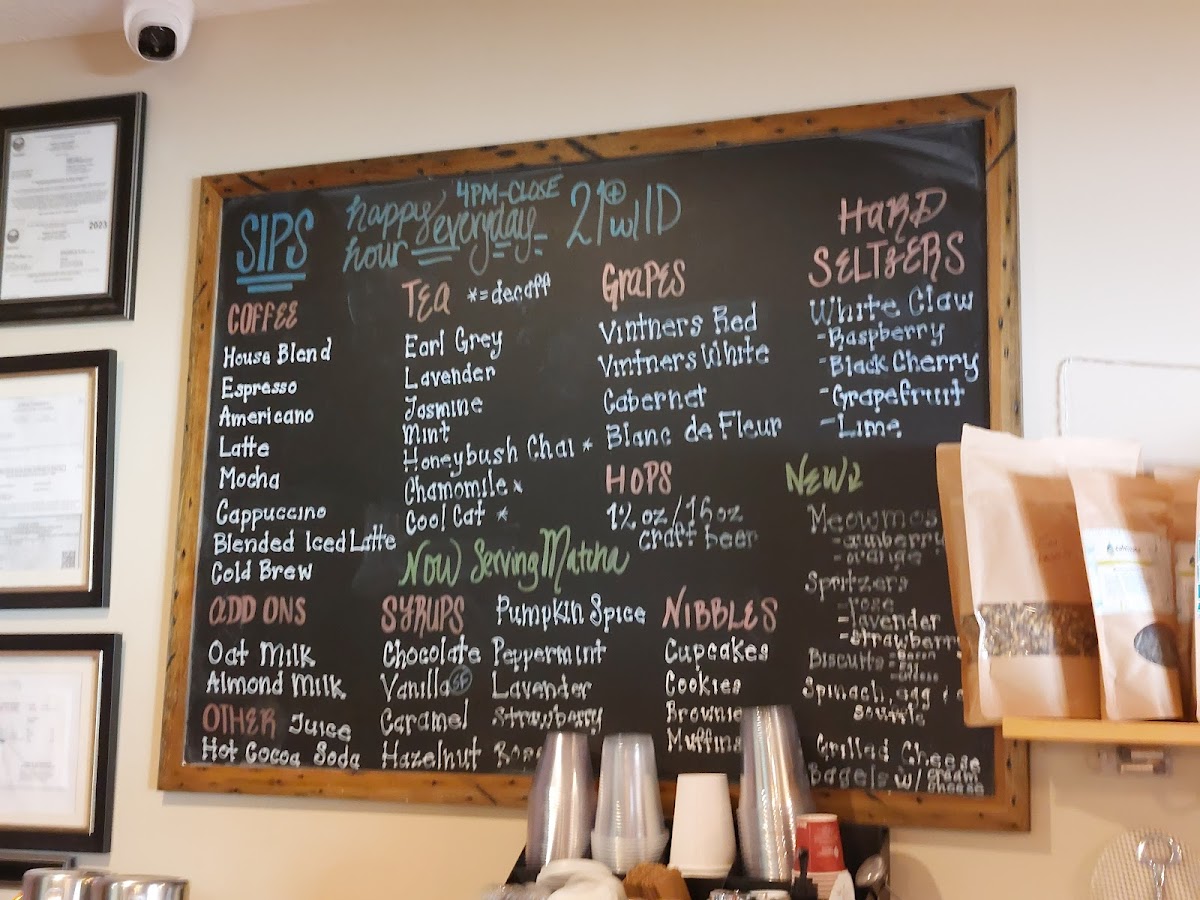 SIPS
happy hour everyday
4PM-CLOSE
21+ w/ID
COFFEE
House Blend
Espresso
Americano
Latte
Mocha
Cappuccino
Blended Iced Latte
Cold Brew
ADD ONS
Oat Milk
Almond Milk
OTHER Juice
Hot Cocoa Soda
TEA *=decaff
Earl Grey
Lavender
Jasmine
Mint
Honeybush Chai *
Chamomile *
Cool Cat *
Now Serving Matcha
SYRUPS
Chocolate
Vanilla SF
Caramel
Hazelnut
Pumpkin Spice
Peppermint
Lavender
Strawberry
GRAPES
Vintners Red
Vintners White
Cabernet
Blanc de Fleur
HOPS
12 oz/16oz
craft beer
NIBBLES
Cupcakes
Cookies
Brownie
Muffins
HARD
SELTZERS
White Claw
-Raspberry
-Black Cherry
-Grapefruit
-Lime
NEW
Meowmos
-cranberry
-orange
Spritzers
-rose
-lavender
-strawberry
Biscuits
Spinach, egg
souffle
Grilled Cheese
Bagels w/ cream
cheese
2023